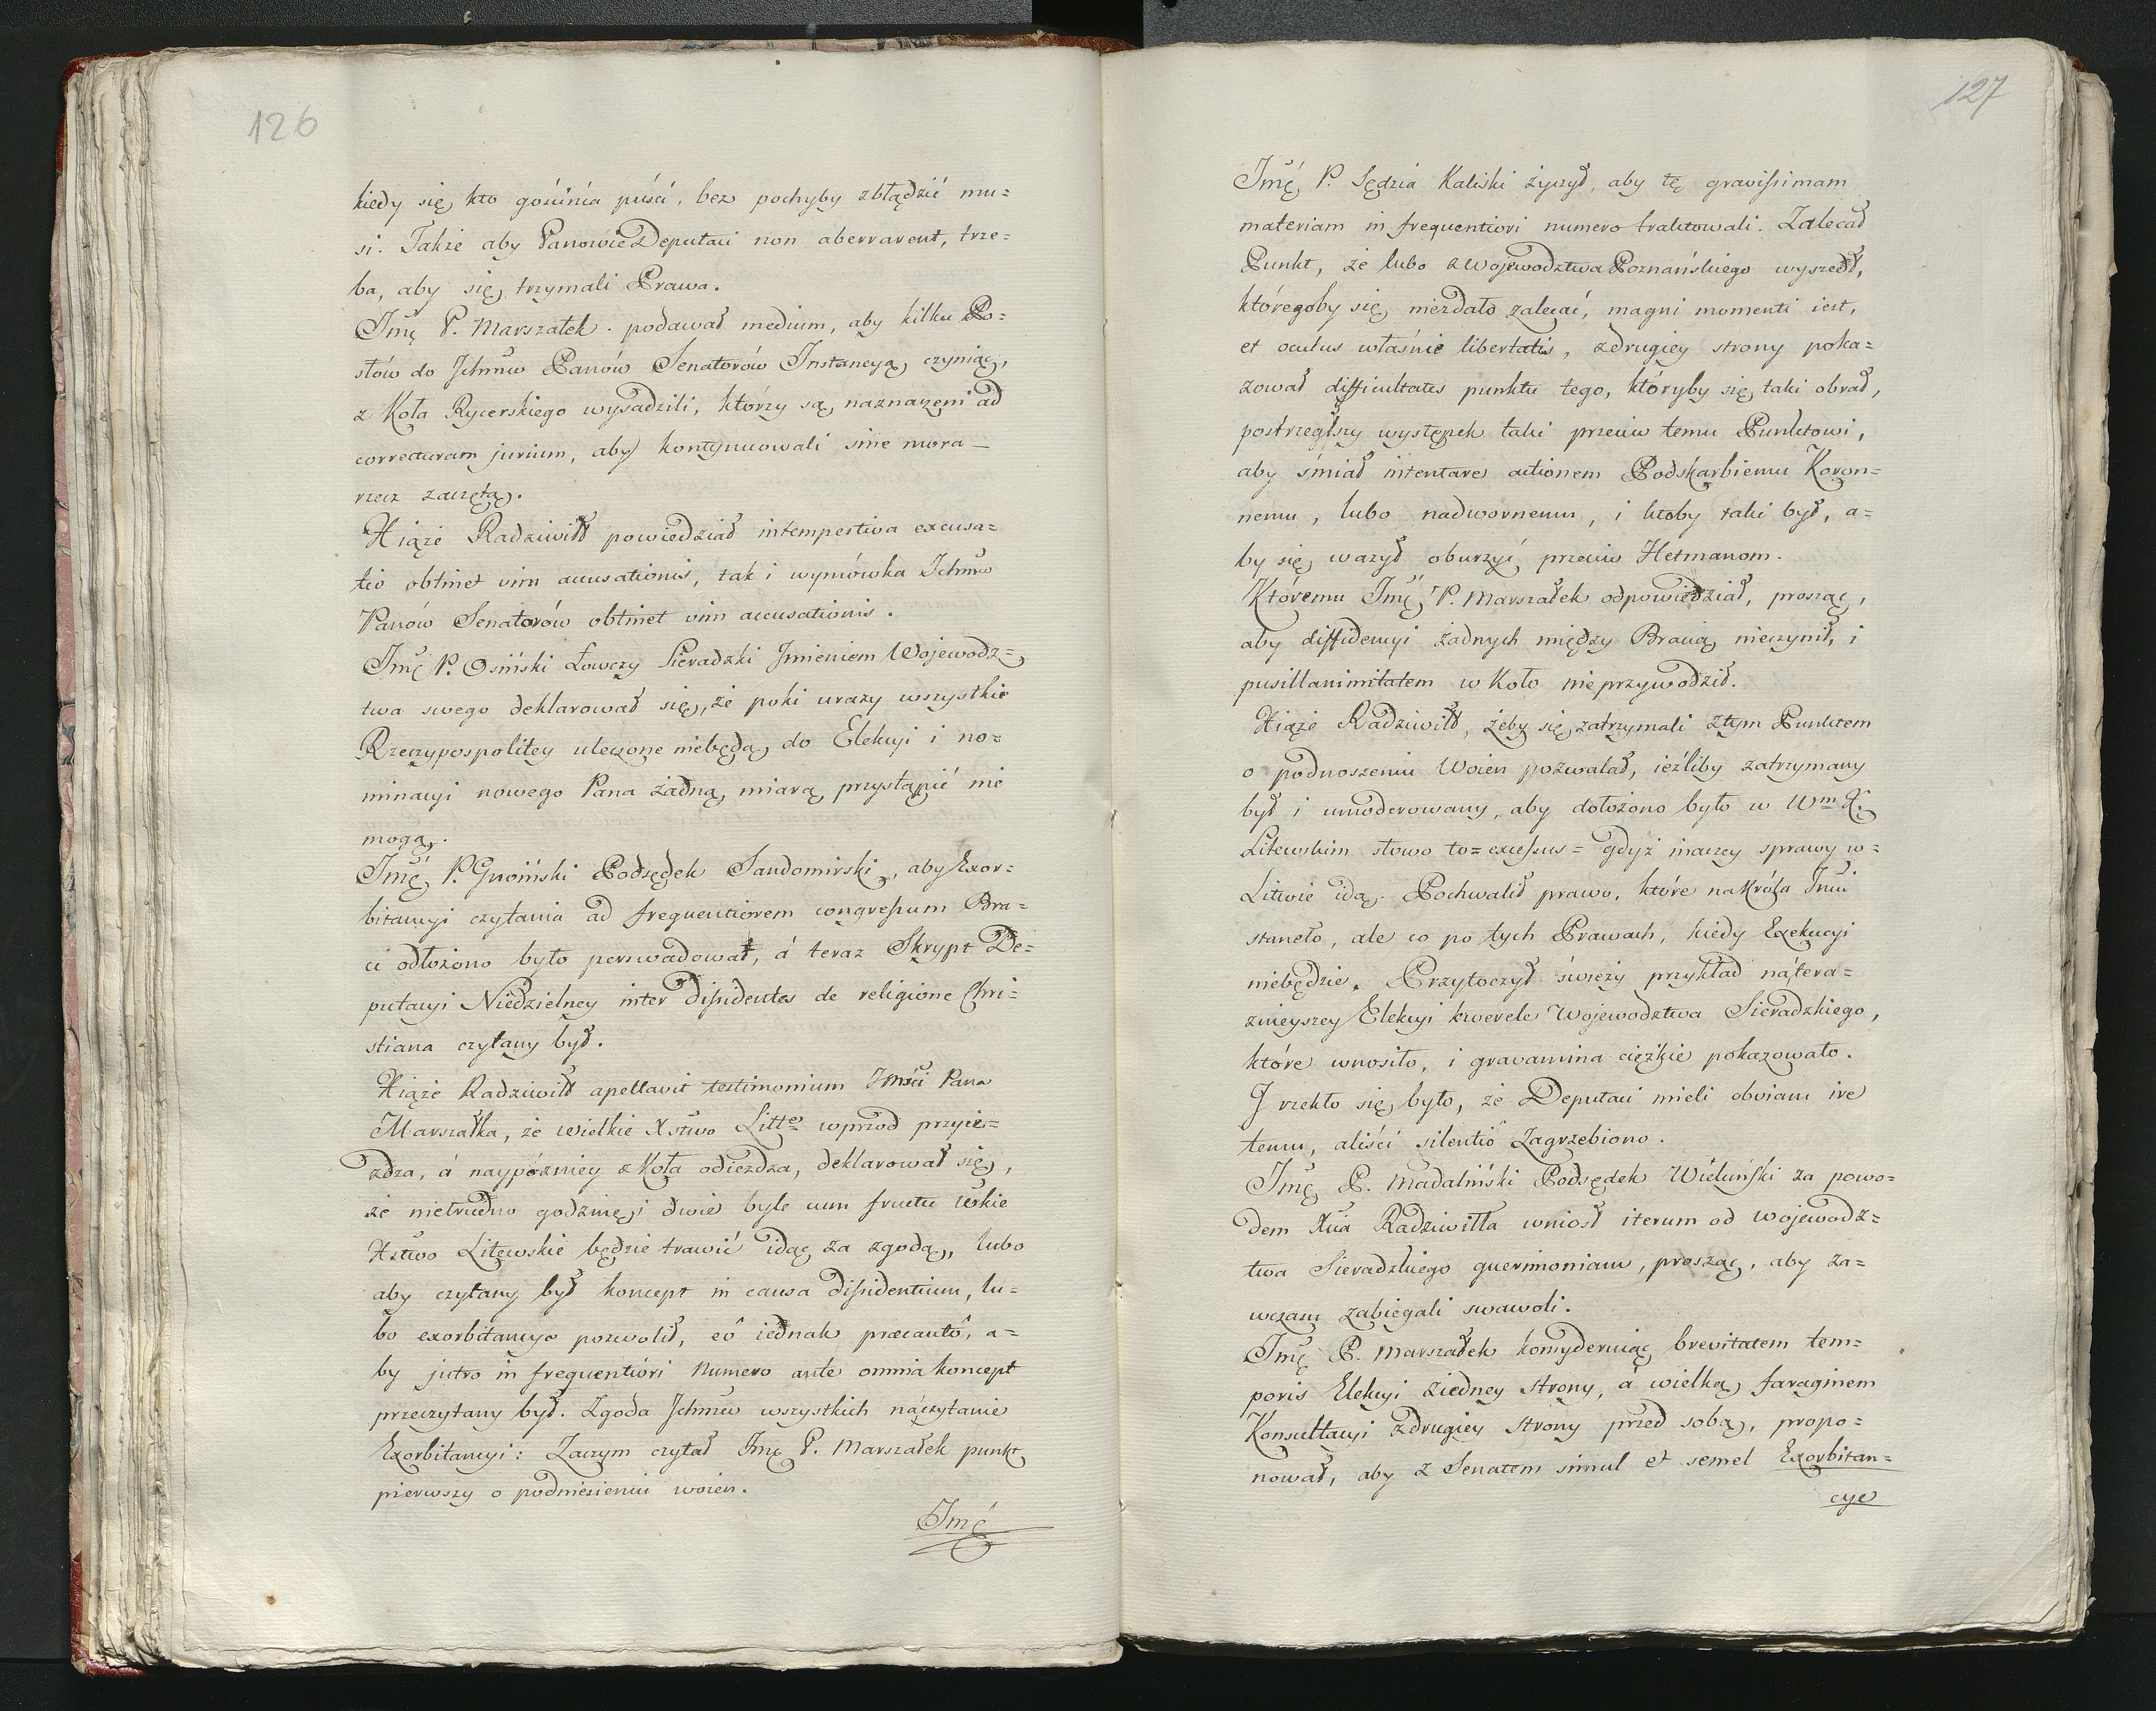 126
kiedy się kto gościńcá puści, bez pochyby zbłądzić mu=
si. Także aby Panowie Deputaci non aberrarent, trze=
ba, aby się trzymali Prawa.
Jmę P. Marszałek podawał medium, aby kilku Po=
słów do Jchmśw Panów Senatorów Instancyą czyniąc,
z Koła Rycerskiego wysadzili, którzy są naznaczeni ad
correcturam jurium, aby kontynuowali sine mora
rzecz zaczętą.
Xiąże Radziwiłł powiedział intempestiva excusa=
tio obtinet vim accusationis, tak i wymówka Jchmśw
Panów Senatorów obtinet vim accusationis.
Jmę P. Osiński Łowczy Sieradzki Jmieniem Wojewodz=
twa swego deklarował się, że poki urazy wszystkie
Rzeczypospolitey uleczone niebędą, do Elekcyi i no=
minacyi nowego Pana żadną miarą przystąpić nie
mogą.
Jmę P. Gnoiński Podsędek Sandomirski, aby Exor=
bitancyi czytania ad frequentiorem congressum Bra=
ci odłożono było perswadował, á teraz Skrypt De=
putacyi Niedzielney inter dissidentes de religione Chri=
stiana czytany był.
Xiąże Radziwiłł apellavit testimonium Jmści Pana
Marszałka, że wielkie Xstwo Litte wprzod przyie=
zdza, á naypózniey z Koła odiezdza, deklarował się,
że nietrudno godzinę i dwie byle cum fructu Wskie
Xstwo Litewskie będzie trawić idąc za zgodą, lubo
aby czytany był koncept in causa dissidentium, lu=
bo exorbitancye pozwolił, eô iednak præcautô, a=
by jutro in frequentióri numero ante omnia koncept
przeczytany był. Zgoda Jchmśw wszystkich ná czytanie
Exorbitancyi: Zaczym czytał Jmę P. Marszałek punkt
pierwszy o podniesieniu woien.
Jmę
127
Jmę P. Sędzia Kaliski życzył, aby tę gravissimam
materiam in frequentiori numero traktowali. Zalecał
Punkt, że lubo z Województwa Poznańskiego wyszedł,
któregoby się niezdało zalecać, magni momenti iest,
et oculus właśnie libertatis, zdrugiey strony poka=
zował difficultates punktu tego, któryby się taki obrał,
postrzegłszy występek taki przeciw temu Punktowi,
aby śmiał intentare actionem Podskarbiemu Koron=
nemu, lubo nadwornemu, i ktoby taki był, a=
by się ważył oburzyć przeciw Hetmanom.
Któremu Jmę P. Marszałek odpowiedział, prosząc,
aby diffidencyi żadnych między Bracią nieczynił, i
pusillanimitatem w Koło nieprzywodził.
Xiąże Radziwiłł, żeby się zatrzymali ztym Punktem
o podnoszeniu Woien pozwalał, ieźliby zatrzymany
był i umoderowany, aby dołożono było w Wm X.
Litewskim słowo to= excessus= gdyż inaczey sprawy w=
Litwie idą. Pochwalił prawo, które na Króla Jmści
staneło, ale co po tych Prawach, kiedy Exekucyi
niebędzie. Przytoczył świeży przykład ná tera=
znieyszey Elekcyi kwerele Województwa Sieradzkiego,
które wnosiło, i gravamina cięźkie pokazowało.
J rzekło się było, że Deputaci mieli obviam ire
temu, aliści silentiô zagrzebiono.
Jmę P. Madaliński Podsędek Wieluński za powo=
dem Xcia Radziwiłła wniosł iterum od wojewodz=
twa Sieradzkiego querimoniam, prosząc, aby za=
wczasu zabiegali swawoli.
Jmę P. Marszałek konsyderuiąc brevitatem tem=
poris Elekcyi ziedney strony, á wielką faraginem
Konsultacyi zdrugiey strony przed sobą, propo=
nował, aby z Senatem simul et semel Exorbitan=
cye